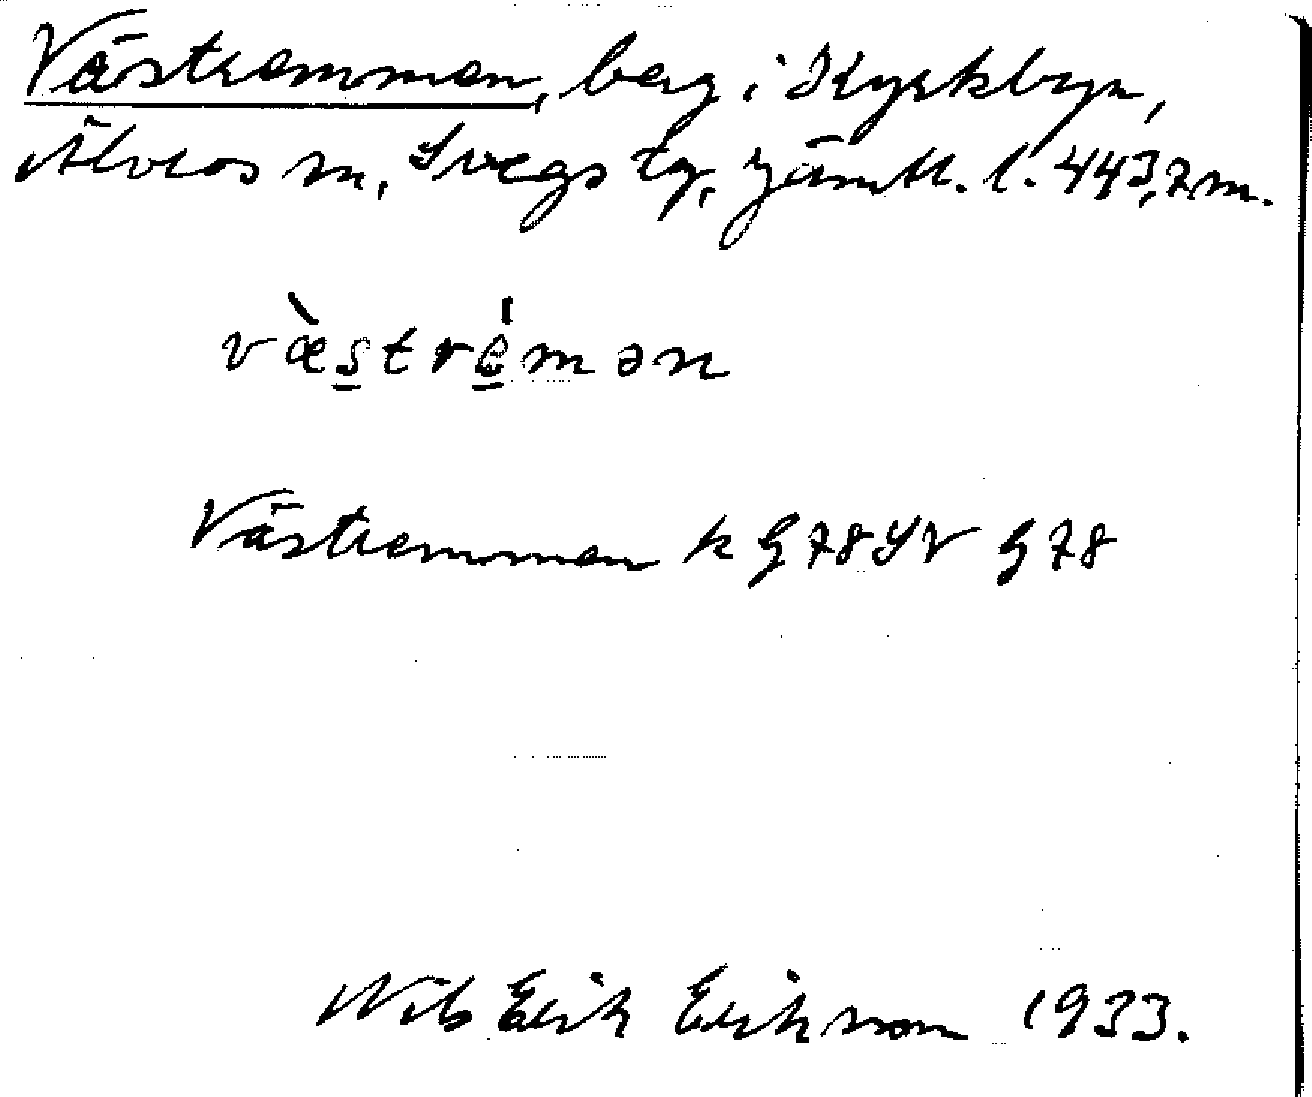 Västremmen, berg i Kyrkbyn,
Älvros sn, Svegs tg, Jämtl. l. 443,7 m.
væ̀strémən
Västremmen k G 78 SV G 78
Nils Erik Eriksson 1933.